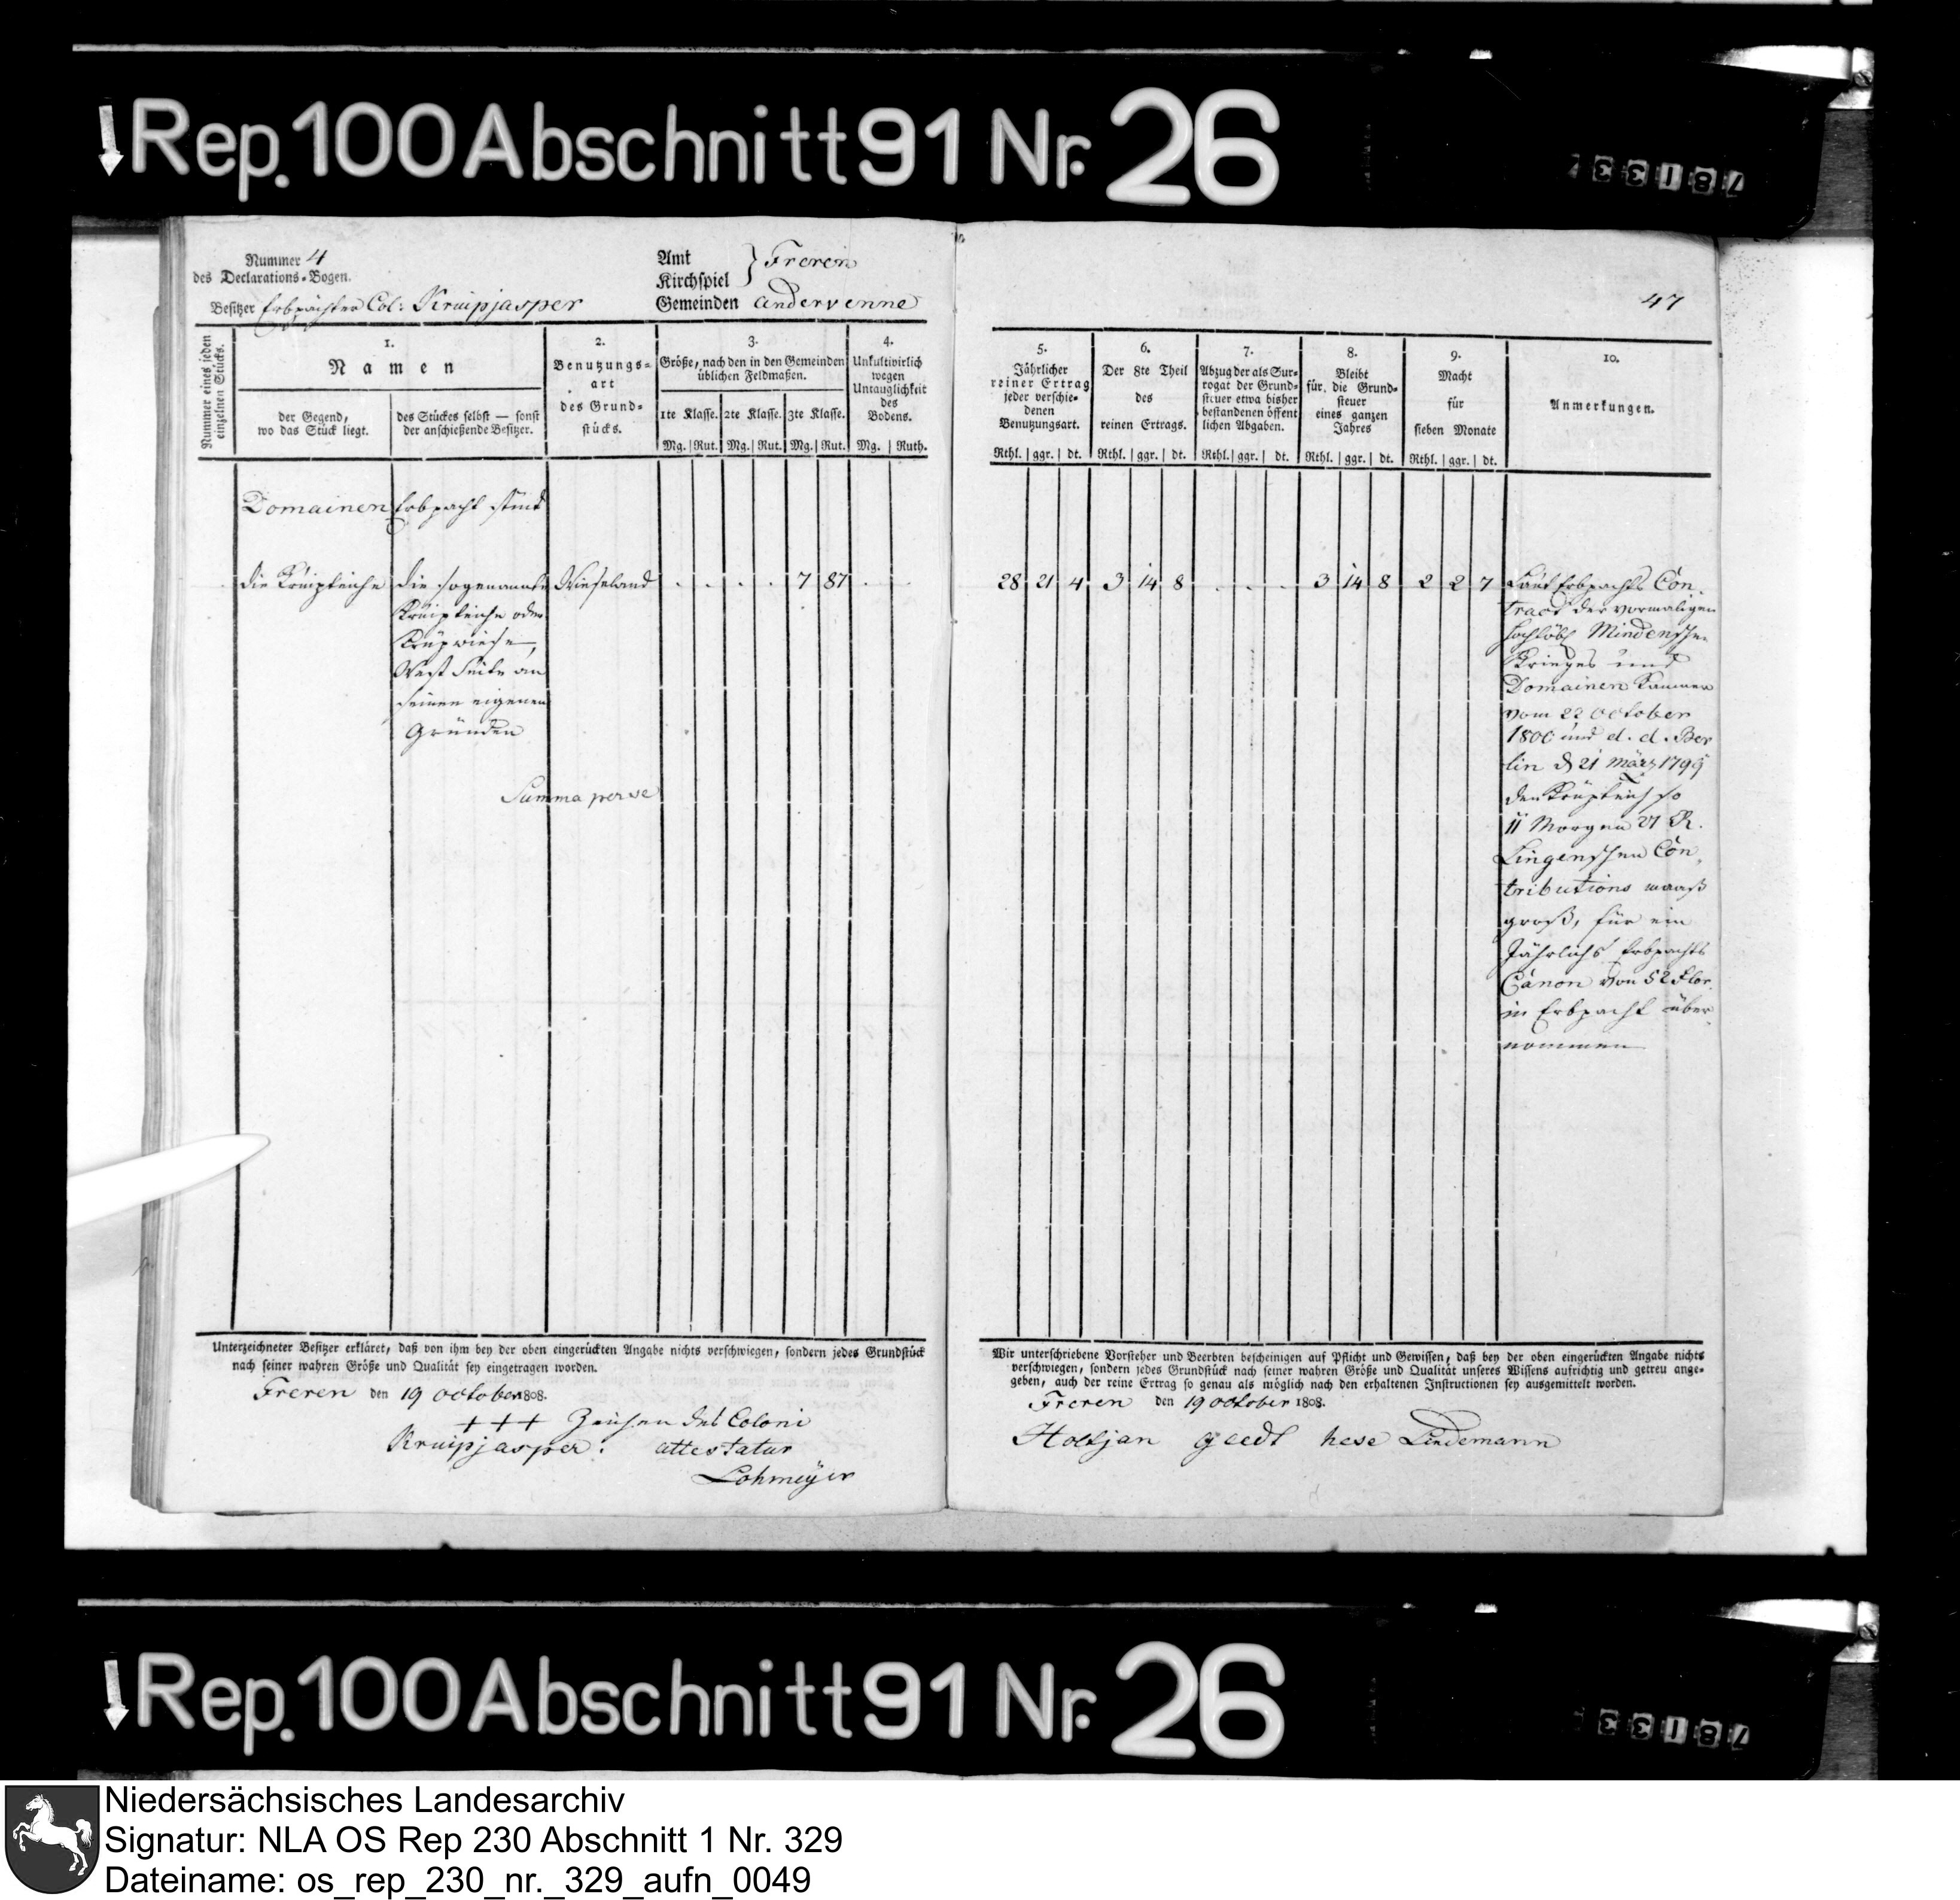 Rep. 100 Abschnitt 91 Nr. 26
78133
Nummer 4
des Declarations-Bogen.
Besitzer Erbpächter Col: Kruipjasper
Amt
Kirchspiel } Freren
Gemeinden Andervenne
47
Nummer eines jeden einzelnen Stücks.
1.
Namen
der Gegend,
wo das Stück liegt.
des Stückes selbst — sonst
der anschießende Besitzer.
2.
Benutzungs-
art
des Grund-
stücks.
3.
Größe, nach den in den Gemeinden
üblichen Feldmaßen.
1te Klasse. 2te Klasse. 3te Klasse.
Mg. Rut. Mg. Rut. Mg. Rut.
4.
Unkultivirlich
wegen
Untauglichkeit
des
Bodens.
Mg. Ruth.
5.
Jährlicher
reiner Ertrag
jeder verschie-
denen
Benutzungsart.
Rthl. ggr. dt.
6.
Der 8te Theil
des
reinen Ertrags.
Rthl. ggr. dt.
7.
Abzug der als Sur-
rogat der Grund-
steuer etwa bisher
bestandenen öffent
lichen Abgaben.
Rthl. ggr. dt.
8.
Bleibt
für die Grund-
steuer
eines ganzen
Jahres
Rthl. ggr. dt.
9.
Macht
für
sieben Monate
Rthl. ggr. dt.
10.
Anmerkungen.
Domainen Erbpacht Stück
die Kruipteiche
die sogenannte
Kruipteiche oder
Krüpwiese,
West Seite an
seinen eigenen
Gründen
Wieseland
7 87
28 21 4 3 14 8 3 14 8 2 2 7
Summa per se
Laut Erbpachts Con-
tract der vormaligen
hochlöbl Mindenschen
Krieges und
Domainen Kammer
vom 22 October
1800 und d. d. Ber
lin d 21 März 1799
den Krüpteich so
11 Morgen 27 R.
Lingenschen Con-
tributions maaß
groß, für ein
Jährlichs Erbpachts
Canon von 52 Flor.
in Erbpacht über-
nommen
Unterzeichneter Besitzer erkläret, daß von ihm bey der oben eingerückten Angabe nichts verschwiegen, sondern jedes Grundstück
nach seiner wahren Größe und Qualität sey eingetragen worden.
Freren den 19 October 1808.
+++ Zeichen des Coloni
Kruipjasper: attestatur
Lohmeyer
Wir unterschriebene Vorsteher und Beerbten bescheinigen auf Pflicht und Gewissen, daß bey der oben eingerückten Angabe nichts
verschwiegen, sondern jedes Grundstück nach seiner wahren Größe und Qualität unseres Wissens aufrichtig und getreu ange-
geben, auch der reine Ertrag so genau als möglich nach den erhaltenen Instructionen sey ausgemittelt worden.
Freren den 19 October 1808.
Holtjan hese Lindemann
Rep. 100 Abschnitt 91 Nr. 26
78133
Niedersächsisches Landesarchiv
Signatur: NLA OS Rep 230 Abschnitt 1 Nr. 329
Dateiname: os_rep_230_nr._329_aufn_0049